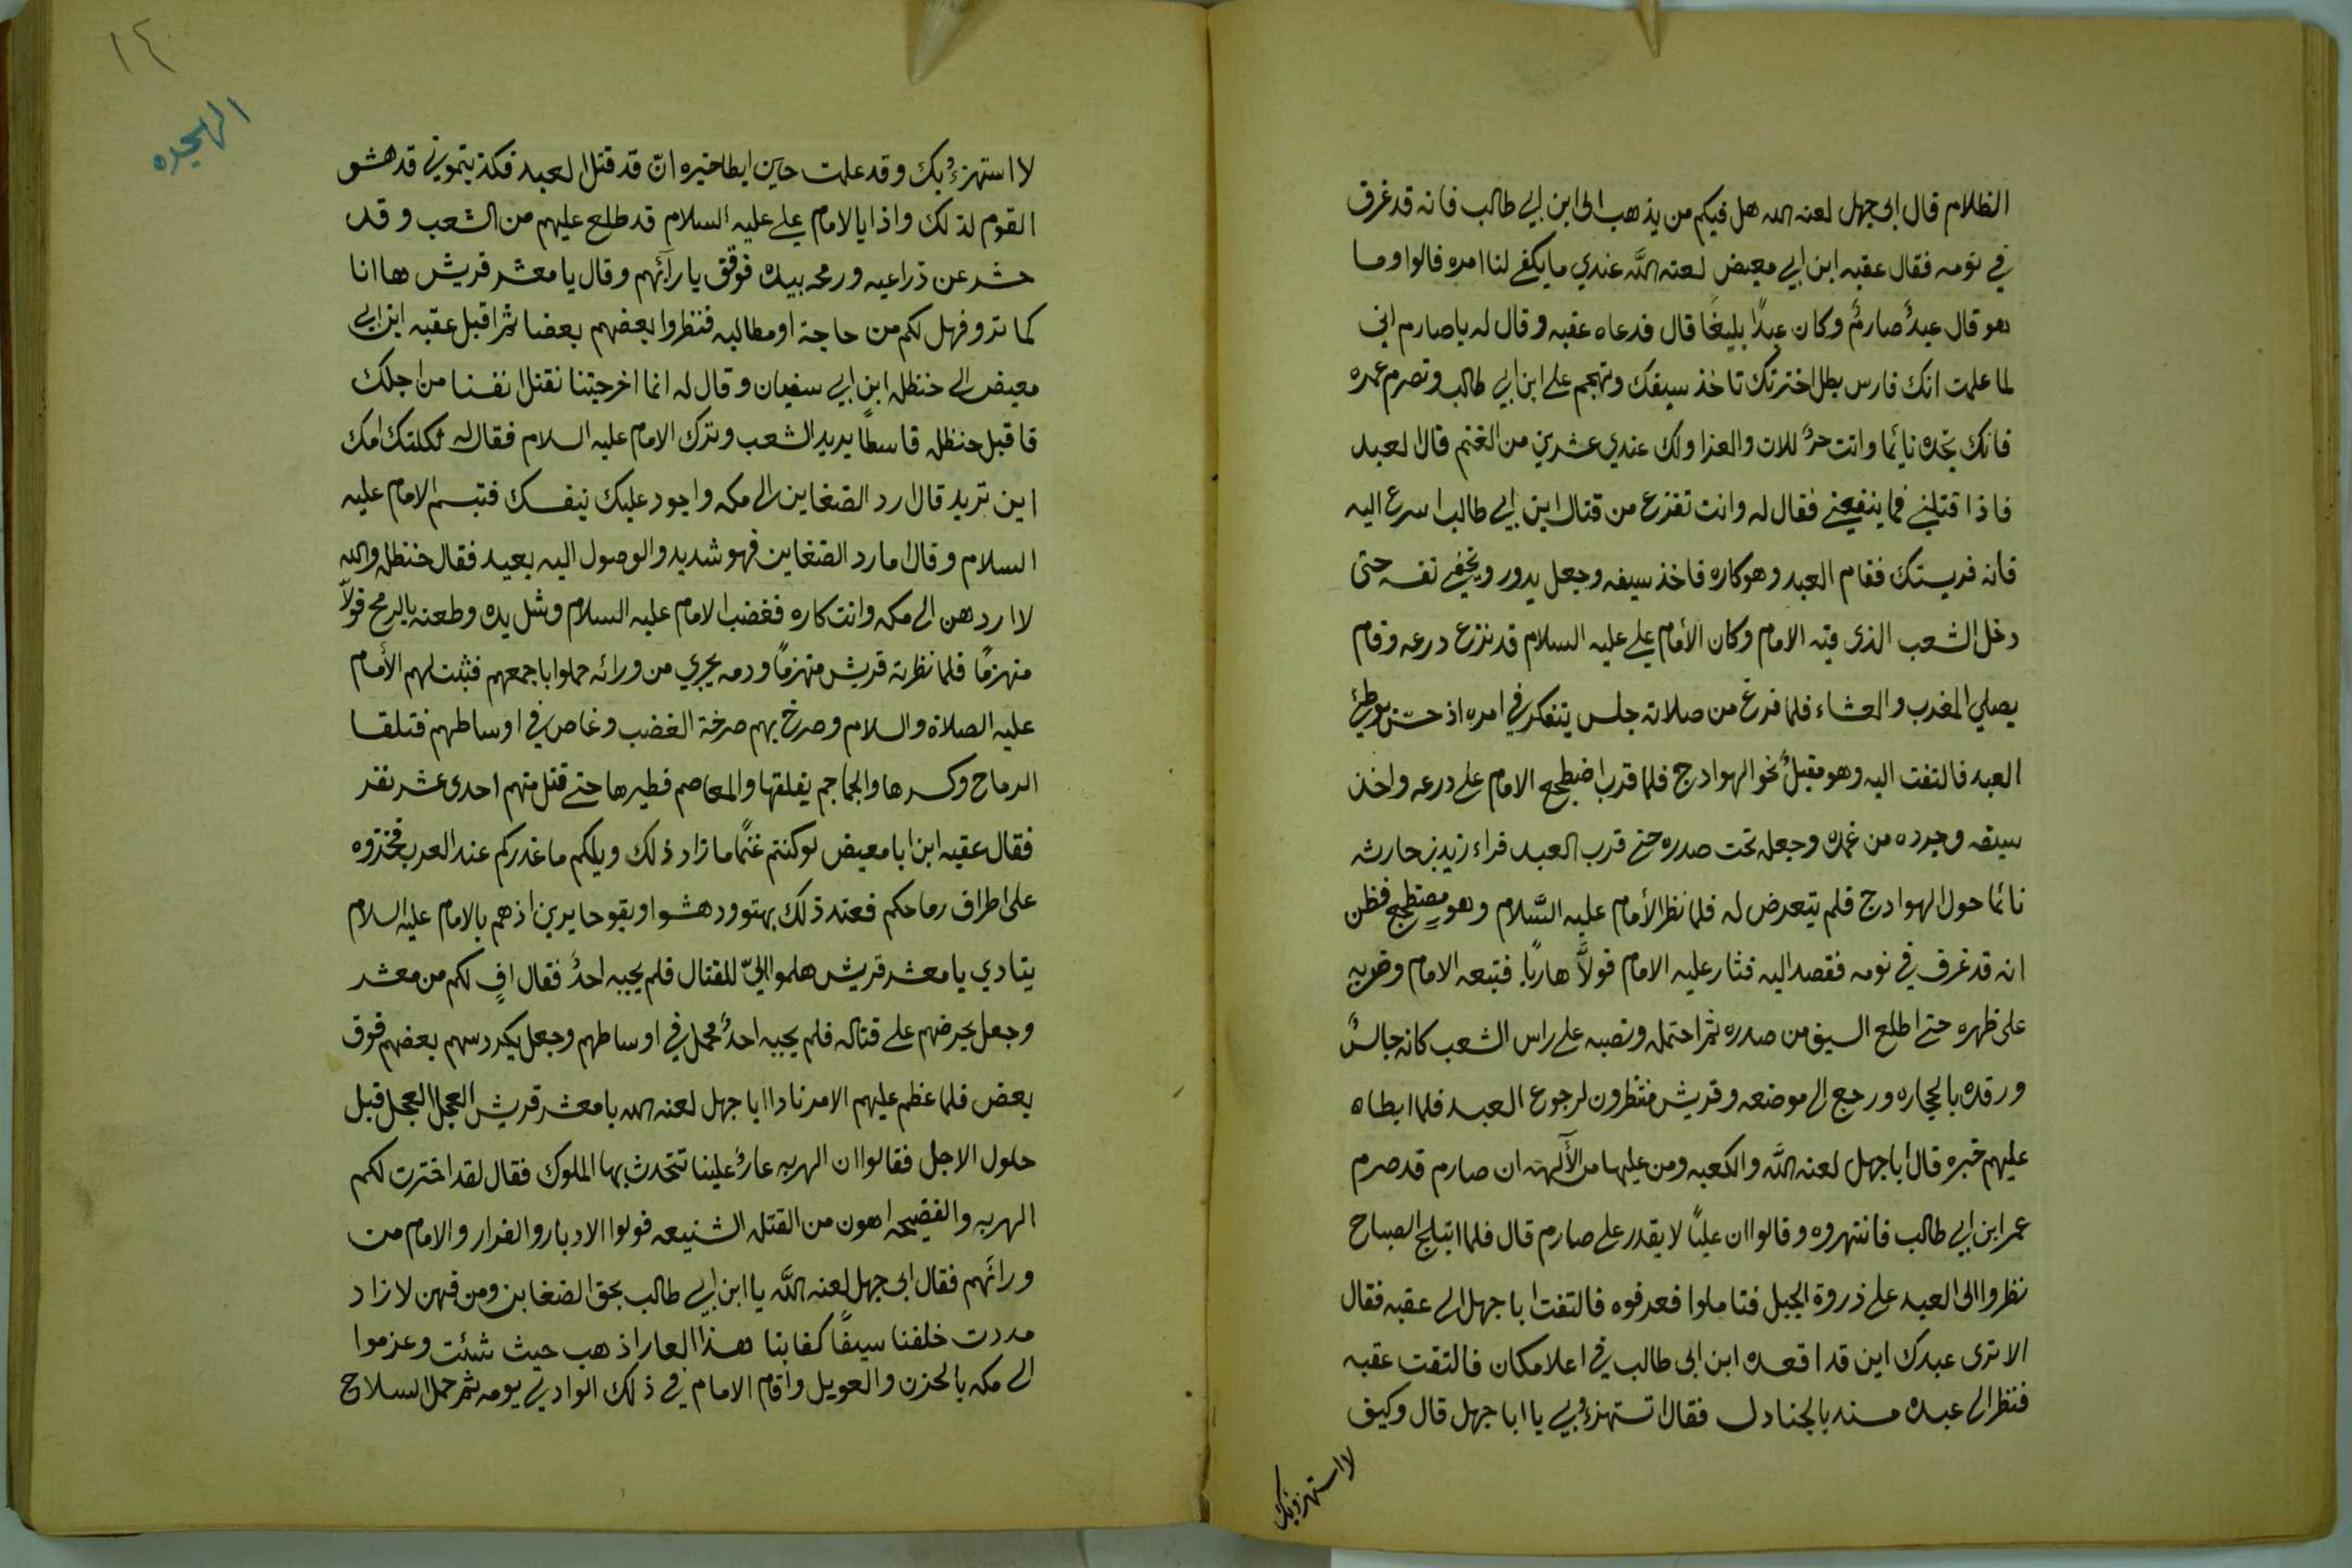 الظلام قال ابى جهل لعنه الله هل فيكم من يذهب الى ابن ابي طالب فانه قد غرق
في نومه فقال عقبه ابن ابي معيض لعنه الله عندي ما يكفي لنا امره فالوا وما
هو قال عبدٌ صارمٌ وكان عبدًا بليغًا قال فدعاه عقبه وقال له يا صارم اني
لما علمت انك فارس بطل اخترتك تاخذ سيفك وتهجم على ابن ابي طالب وتصرم عمره
فانك تجده نايما وانت حرٌ للات والعزا ولك عندي عشرين من الغنم قال العبد
فاذا قتلني فما ينفعني فقال له وانت تفزع من قتال ابن ابي طالب اسرع اليه
فانه فريستك فقام العبد وهو كاره فاخذ سيفه وجعل يدور ويخفي نفسه حتى
دخل الشعب الذى فيه الامام وكان الأمام علي عليه السلام قد نزع درعه وقام
يصلي المغرب والعشاء فلما فرغ من صلاته جلس يتفكر في امره اذ حسّ بوطئ
العبد فالتفت اليه وهو مقبلٌ نحو الهوادج فلما قرب اضطجع الامام على درعه واخذ
سيفه وجرده من غمده وجعله تحت صدره حتى قرب العبد فراء زيد بن حارثه
نائما حول الهوادج فلم يتعرض له فلما نظر الأمام عليه السَّلام وهو مضطجع فظن
انه قد غرق في نومه فقصد اليه فثار عليه الامام فولَّا هاربًا فتبعه الامام وضربه
على ظهره حتى اطلع السيف من صدره ثم احتمله ونصبه على راس الشعب كانه جالسٌ
ورفده بالحجاره ورجع الى موضعه وقريش منتظرون لرجوع العبد فلما ابطاه
عليهم خبره قال ابا جهل لعنه الله والكعبه ومن عليها من الآلهة ان صارم قد صرم
عمر ابن ابي طالب فانتهروه وقالوا ان عليًا لا يقدر على صارم قال فلما ابتلج الصباح
نظروا الى العبد على ذروة الجبل فتاملوا فعرفوه فالتفت ابا جهل الى عقبه فقال
الا ترى عبدك اين قد اقعده ابن ابى طالب في اعلا مكان فالتفت عقبه
فنظر الى عبده مسند بالجنادل فقال اتستهزءُ بي يا ابا جهل قال وكيف
لا استهزؤ بك
١٤
الهجره
لا استهزءُ بك وقد علمت حين ابطا خبره انّ قد قتل العبد فكذبتموني قد هشو
القوم لذلك واذا بالامام علي عليه السلام قد طلع عليهم من الشعب وقد
حشر عن ذراعيه ورمحه بيده فوقق يا رآئهم وقال يا معشر قريش ها انا
كما ترو فهل لكم من حاجة او مطالبه فنظروا بعضهم بعضا ثم اقبل عقبه ابن ابي
معيض الى حنظله ابن ابي سفيان وقال له انما اخرجتنا نقتل انفسنا من اجلك
فاقبل حنظله قاسطاً يريد الشعب وترك الامام عليه السلام فقال له ثكلتك امك
اين تريد قال ارد الضغاين الى مكه واجود عليك بنفسك فتبسم الامام عليه
السلام وقال اما رد الضغاين فهو شديد والوصول اليه بعيد فقال حنظله والله
لا اردهن الى مكه وانت كاره فغضب الامام عليه السلام وشل يده وطعنه بالرمح فولّا
منهزمًا فلما نظرته قريش منهزمًا ودمه يجري من ورائه حملوا باجمعهم فثبت لهم الأمام
عليه الصلاة والسلام وصرخ بهم صرخة الغضب وغاص في اوساطهم فتلقا
الرماح وكسرها والجماجم يفلقها والمعاصم فطيرها حتى قتل منهم احدى عشر نفر
فقال عقبه ابن ابا معيض لوكنتم غنمًا ما زاد ذلك ويلكم ما عذركم عند العرب فخذوه
على اطراف رماحكم فعند ذلك بهتوو دهشوا وبقو حايرين اذ هم بالامام عليه السلام
ينادي يا معشر قريش هلموا اليّ للقتال فلم يجبه احدٌ فقال افٍ لكم من معشر
وجعل يحرضهم على قتاله فلم يجبه احدٌ فحمل في اوساطهم وجعل يكردسهم بعضهم فوق
بعض فلما عظم عليهم الامر نادا ابا جهل لعنه الله يا معشر قريش العجل العجل قبل
حلول الاجل فقالوا ان الهربه عارٌ علينا تتحدث بها الملوك فقال لقد اخترت لكم
الهربه والفضيحه اهون من القتله الشنيعه فولوا الادبار والفرار والامام من
ورائهم فقال ابى جهل لعنه الله يا ابن ابي طالب بحق الضغاين ومن فيهن لا زاد
مددت خلفنا سيفًا كفا بنا هذا العار اذهب حيث شئت وعزموا
الى مكه بالحزن والعويل واقام الامام في ذلك الوادي يومه ثم حمل السلاح